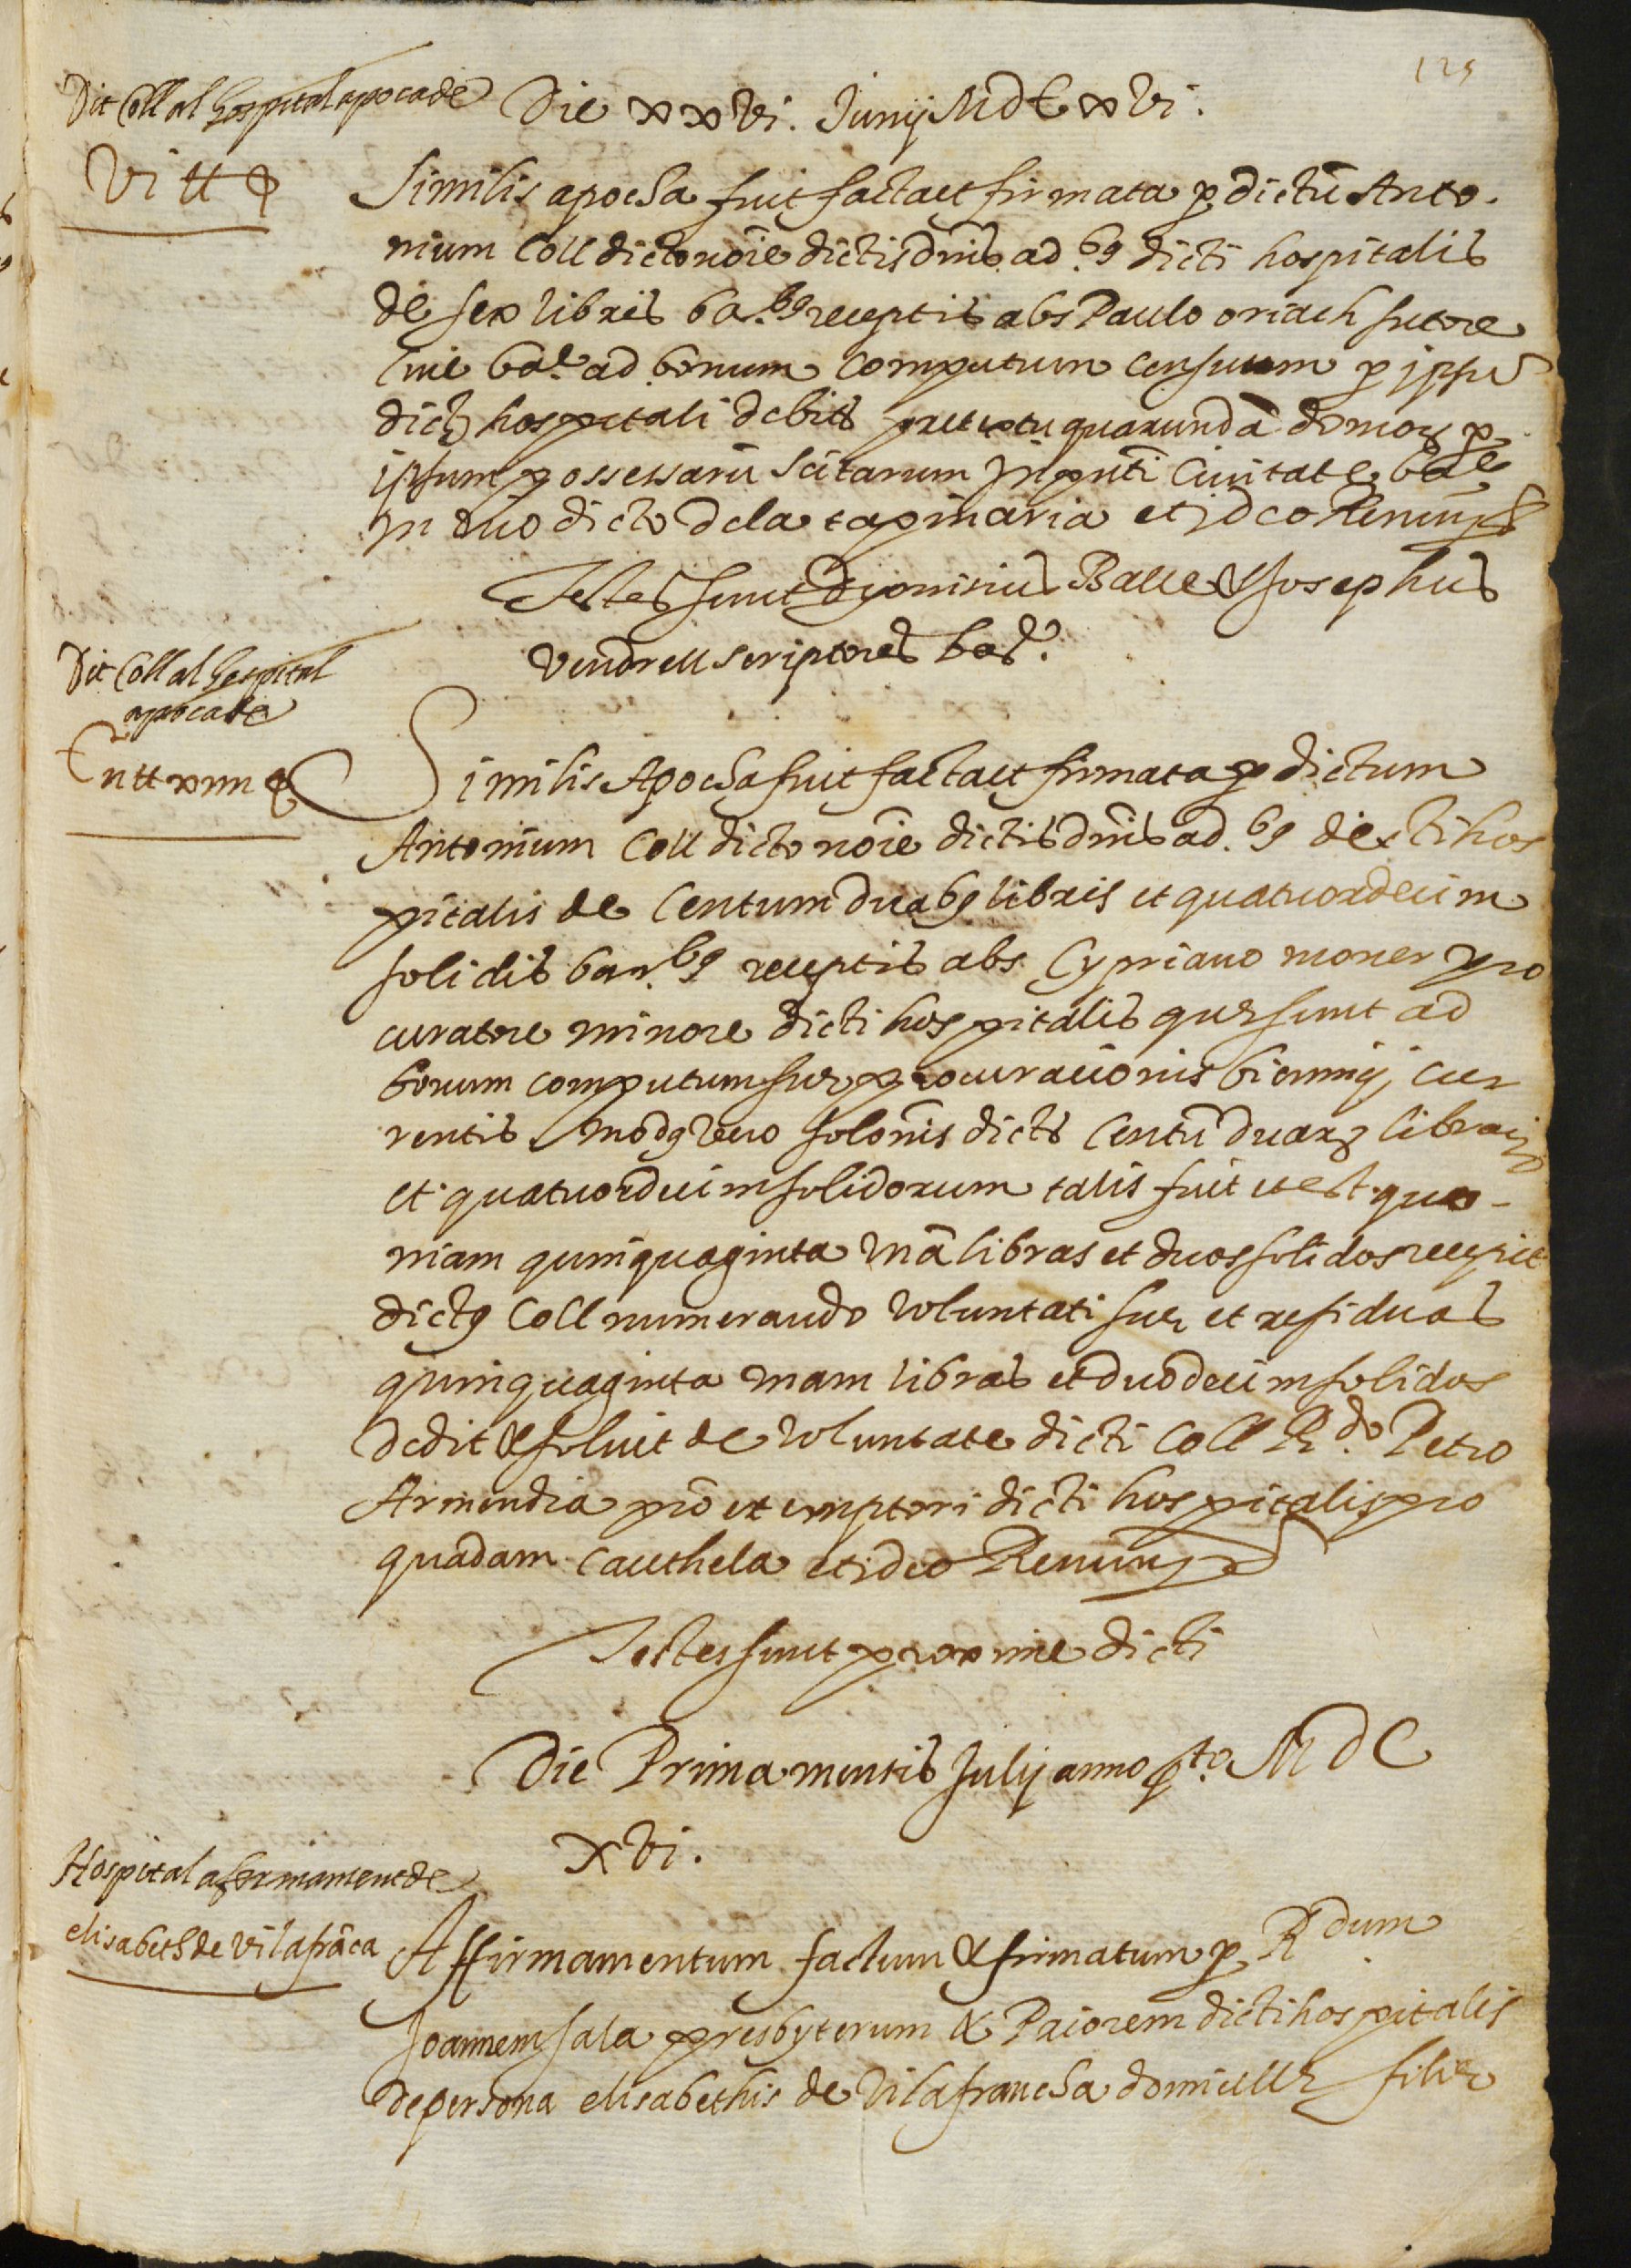 125
Dit Coll al hospital apoca de
Die xxvi. Junij MDCxvi.
vi ₶
Similis apocha fuit facta et firmata p dictū Anto-
nium Coll dicto noīe dictis dnīs ad.bꝰ dicti hospitalis
de sex libris bar.bꝰ receptis abs Paulo oriach sutore
cive bar.e ad bonum computum censuum p ipsū
dictꝫ hospitali debitꝫ pretextu quarundā domoꝝ p
ipsum possessarū scitarum in pnti Civitate bar.e
in vico dicto dela tapinaria et ideo Renunꝭ
Testes sunt dyonisius Balle & Josephus
vendrell scriptores bar.e
Dit Coll al hospital
apoca de
Cii ₶ xiiii
Similis Apocha fuit facta et firmata p dictum
Antonium Coll dicto noīe dictis dnīs ad.bꝰ dicti hos
pitalis de Centum duabꝰ libris et quatuordecim
solidis bar.bꝰ receptis abs Cypriano moner pro
curatore minore dicti hospitalis quę sunt ad
bonum computum suę procuracionis biennij cur
rentis modꝰ vero solonis dictꝫ Centū duarꝝ libraꝝ
et quatuordecim solidorum talis fuit et est quo-
niam quinquaginta vnā libras et duos solidos recepit
dictꝰ Coll numerando voluntati suę et residuas
quinquaginta vnam libras et duodecim solidos
dedit & solvit de voluntate dicti Coll Rdo Petro
Armendia prō et emptori dicti hospitalis pro
quadam cauthela et ideo Renunꝭ
Testes sunt proxime dicti
Die Prima mensis Julij anno pto. MDC
xvi.
Hospital afermament de
elisabeth de vilafrāca
Affirmamentum factum & firmatum p Rdum
Joannem sala presbyterum & Paiorem dicti hospitalis
de persona elisabethis de Vilafrancha domicellę filię